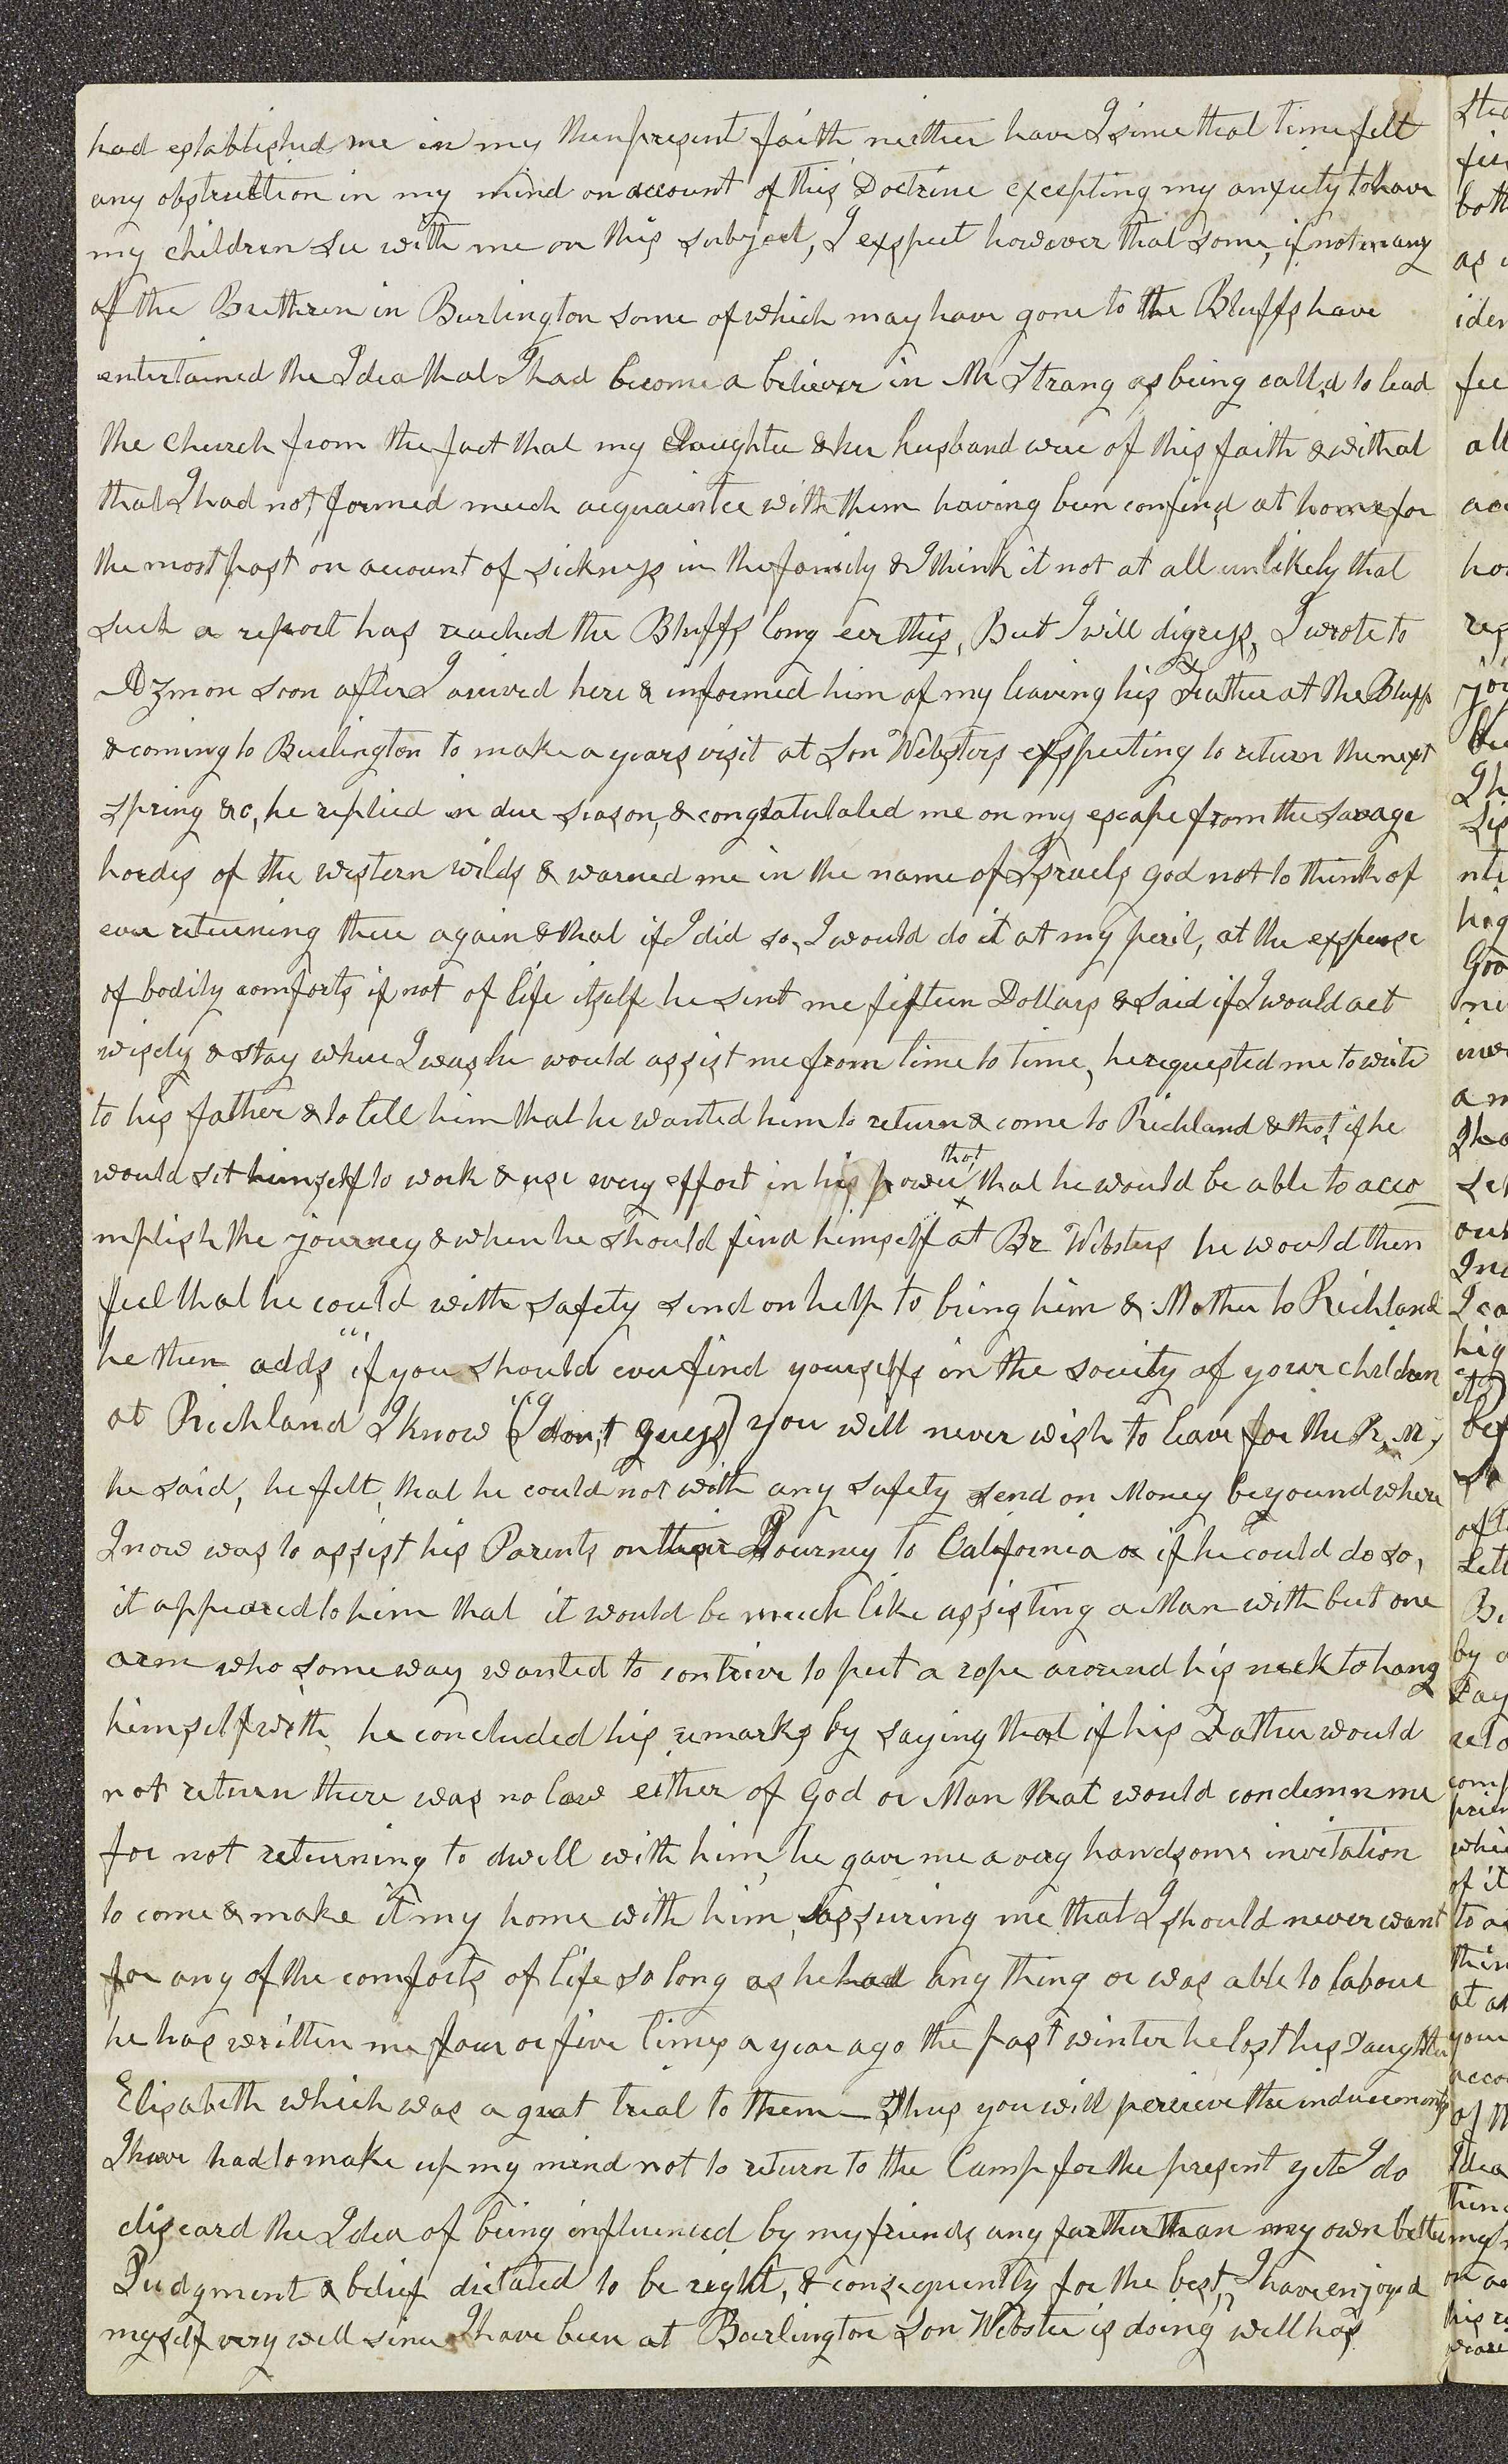 had established me in my then present faith neither have I since that time felt
any obstruction in my mind on account of this Doctrine excepting my anxiety to have
my children see with me on this subject, I expect however that some, if not many
of the Brethren in Burlington some of which may have gone to the Bluffs have
entertained the Idea that I had become a believer in Mr Strang as being call,d to lead
the Church from the fact that my Daughter & her husband were of this faith & withal
that I had not formed much acquaintce with them having been confind at home for
the most part on account of sickness in the family & I think it not at all unlikely that
such a report has reached the Bluffs long eer this, But I will digress, I wrote to
Azmon soon after I arrived here & informed him of my leaving his Father at the Bluffs
& coming to Burlington to make a years visit at Son Websters exspecting to return the next
spring &c, he replied in due season, & congratulated me on my escape from the savage
hordes of the western wilds & warned me in the name of Israels God not to think of
ever returning there again & that if I did so, I would do it at my peril, at the expense
of bodily comforts if not of life itself he sent me fifteen Dollars & said if I would act
wisely & stay where I was he would assist me from time to time, he requested me to write
to his father & to tell him that he wanted him to return & come to Richland & that if he
would set himself to work & use every effort in his power that that he would be able to acco
mplish the journey & when he should find himself at Br Websters he would then
feel that he could with safety send on help to bring him & Mother to Richland
he then adds "if you should ever find yourselfs in the society of your children
at Richland I know (I don,t guess) you will never wish to leave for the R, M,
he said, he felt, that he could not with any safety send on Money beyound where
I now was to assist his Parents on their Journey to California or if he could do so,
it appeared to him that it would be much like assisting a Man with but one
arm who some way wanted to contrive to put a rope around his neck to hang
himself with, he concluded his remarks by saying that if his Father would
not return there was no law either of God or Man that would condemn me
for not returning to dwell with him, he gave me a very handsome invitation
to come & make it my home with him, assuring me that I should never want
for any of the comforts of life so long as he had any thing or was able to labour
he has written me four or five times a year ago the past winter he lost his Daughter
Elisabeth which was a great trial to them — Thus you will percieve the inducements
I have had to make up my mind not to return to the Camp for the present yet I do
discard the Idea of being influenced by my friends any farther than my own better
Judgment & belief dictated to be right, & consequently for the best, I have enjoyed
myself very well since I have been at Burlington Son Webster is doing well has